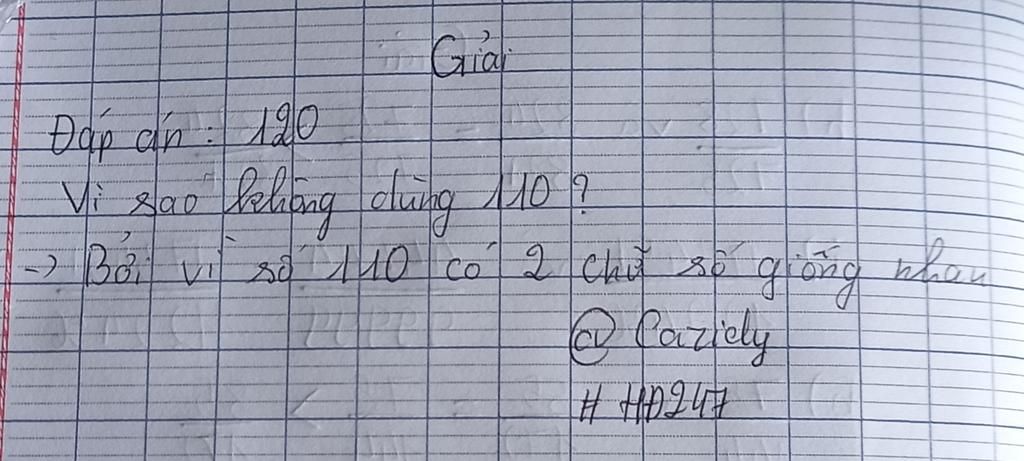 Giải
Đáp án : 120
Vì sao không dùng 110 ?
-> Bởi vì số 110 có 2 chữ số giống nhau
@ Caziely
# HD247